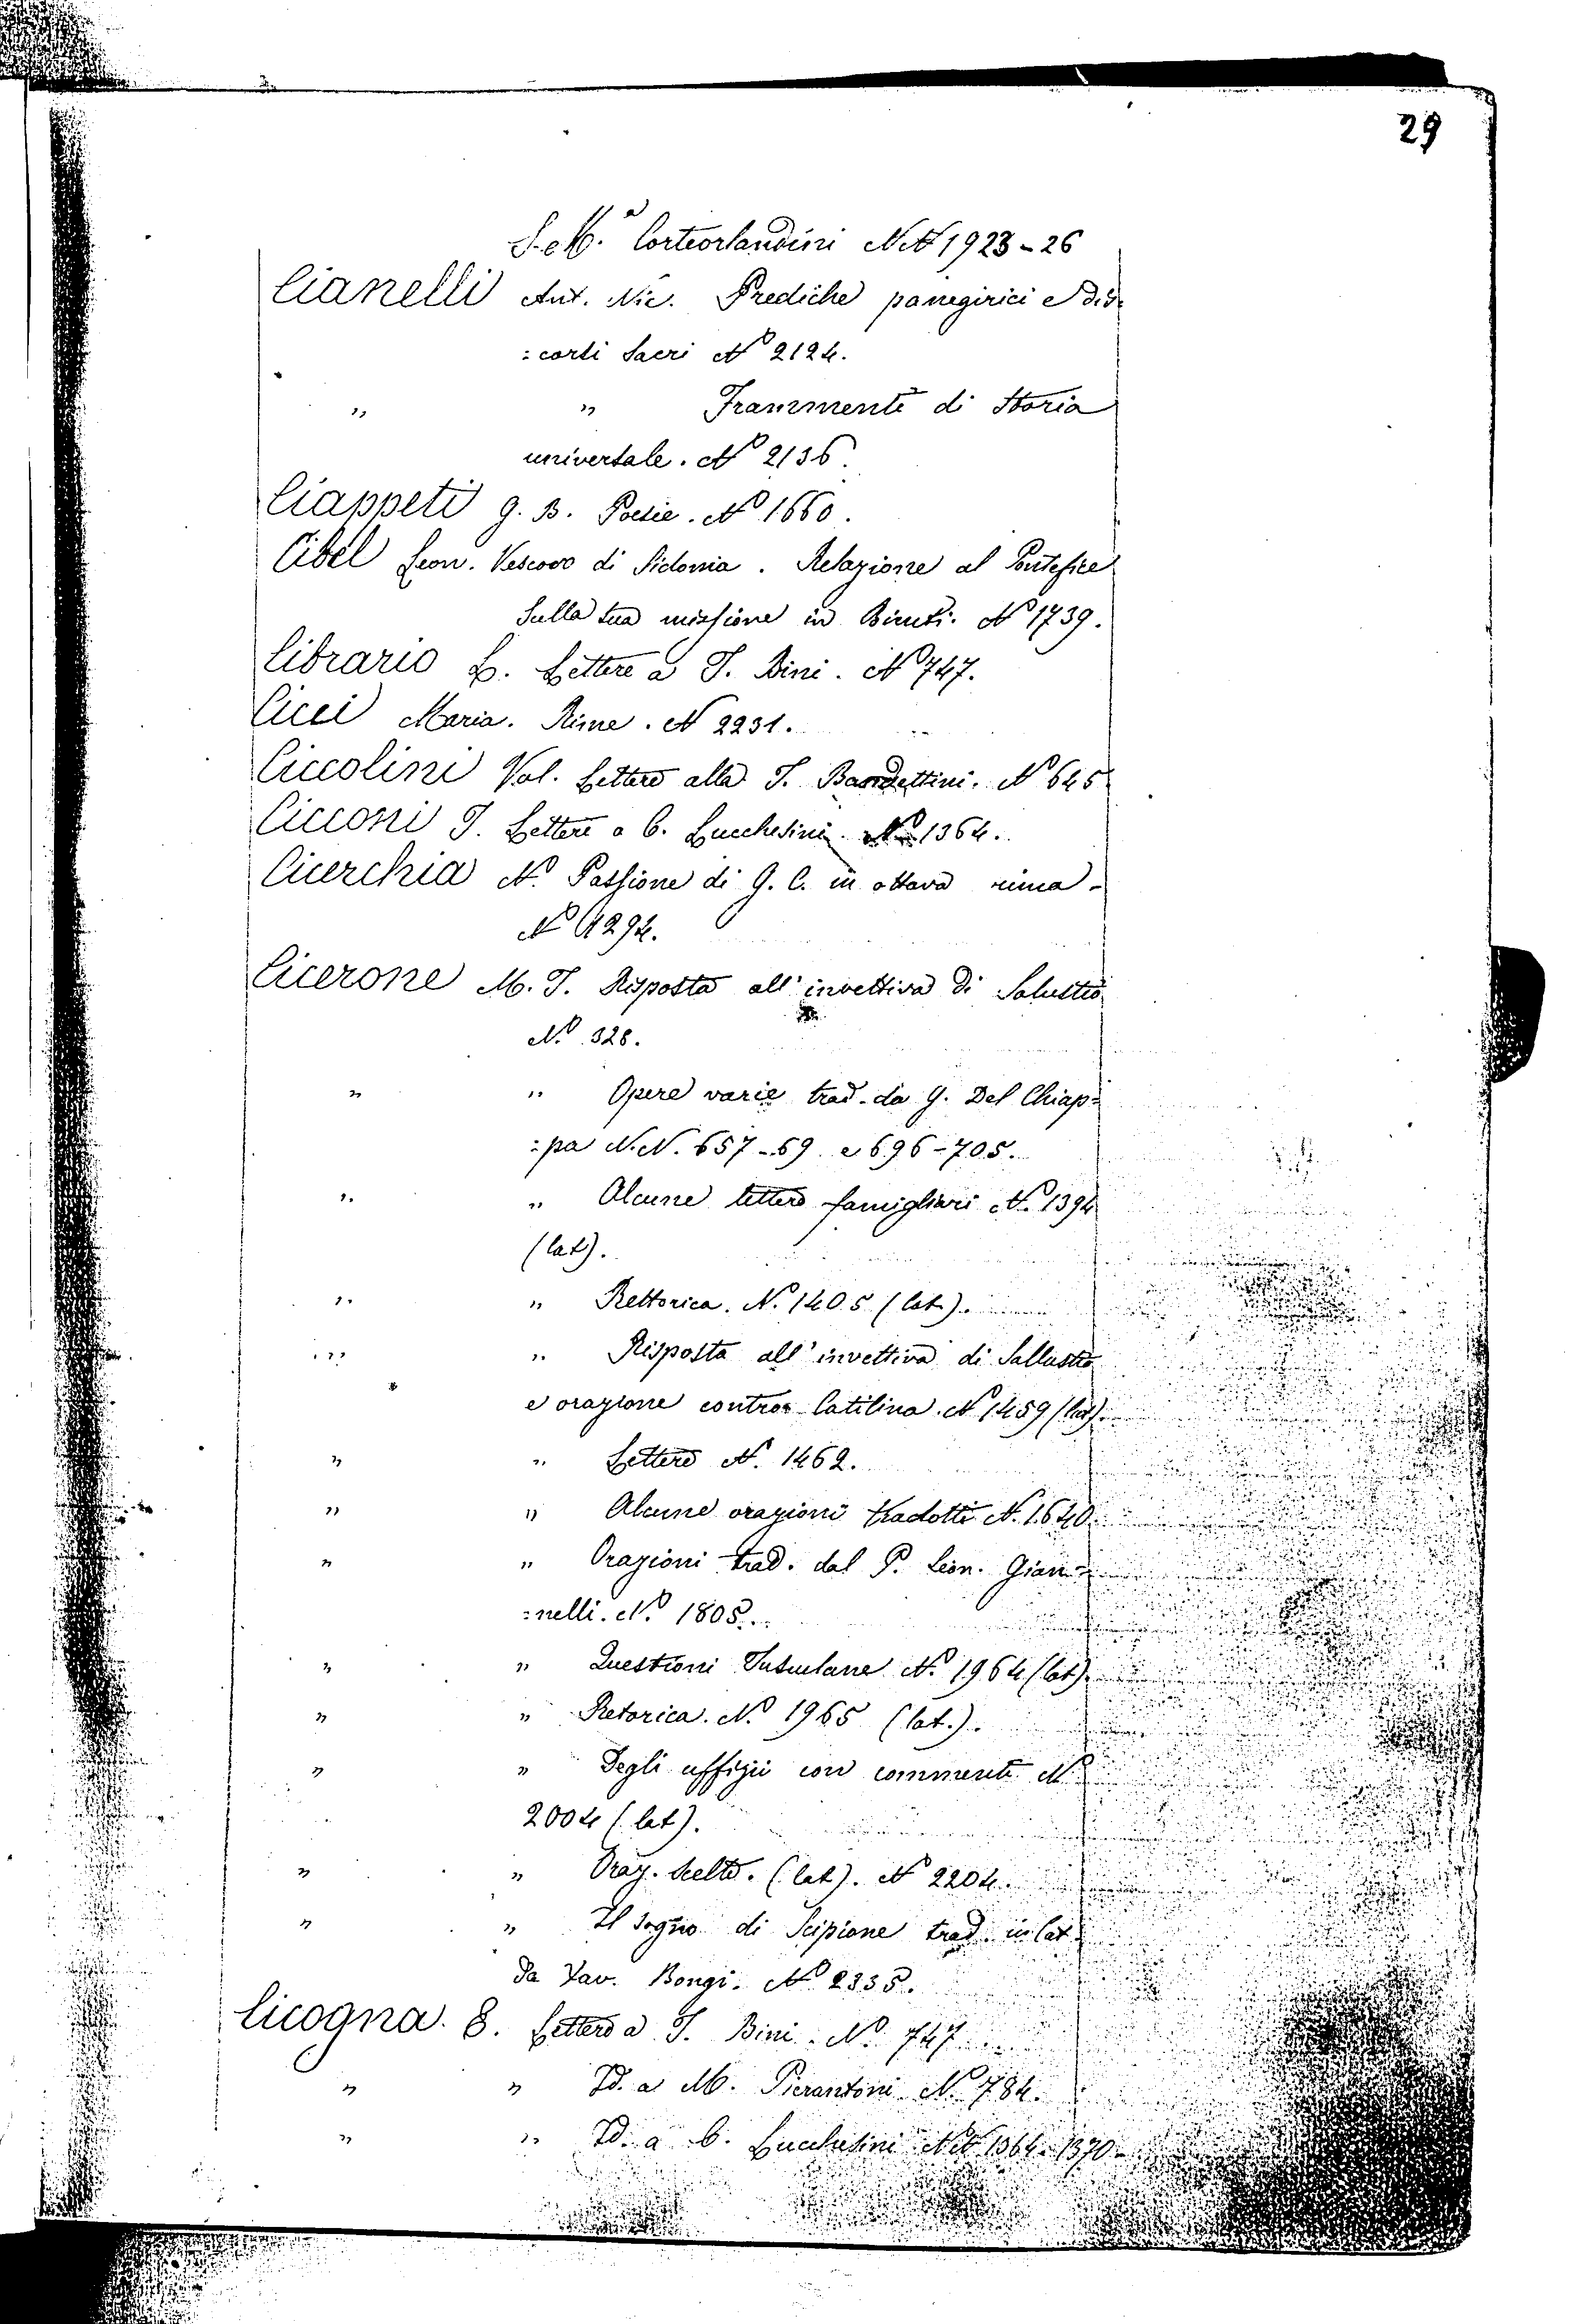 29
S. M.ª Corteorlandini NN 1923-26
Cianelli Ant. Nic. Prediche panegirici e dis-
: corsi Sacri N° 2124.
" " Frammenti di Storia
universale. N° 2136.
Ciappeti G. B. Poesie. N° 1660.
Cibel Leon. Vescovo di Sidonia. Relazione al Pontefice
sulla sua missione in N° 1739.
Cibrario L. Lettere a T. Bini. N° 747.
Cicci Maria. Rime. N 2231.
Ciccolini Vol. Lettere alla T. Bandettini. N° 645
Cicconi T. Lettere a C. Lucchesini. N° 1364.
Cicerchia N. Passione di G. C. in ottava rima -
N° 1294.
Cicerone M. T. Risposta all' invettiva di Salustio
N.° 328.
" " Opere varie trad. da G. Del Chiap=
:pa N.N. 657-69 e 696-705.
" " Alcune lettere famigliari N.° 1394
(lat).
" " Rettorica. N.° 1405 (lat.).
" " Risposta all' invettiva di Sallustio
e orazione contro Catilina. N° 1459 (lat).
" " Lettere N. 1462.
" " Alcune orazioni tradotte N. 1640.
" " Orazioni trad. dal P. Leon. Gian=
:nelli. N.° 1805.
" " Questioni Tusculane N.° 1964 (lat).
" " Retorica. N.° 1965 (lat.).
" " Degli uffizii con commenti N°
2004 (lat).
" " Oraz. scelte. (lat). N° 2204.
" " Il sogno di Scipione trad. in lat.
da Sav. Bongi. N° 2335.
Cicogna. E. Lettere a T. Bini. N.° 747
" " Id. a M. Pierantoni N.° 784.
" " Id. a C. Lucchesini NN 1364-1370-